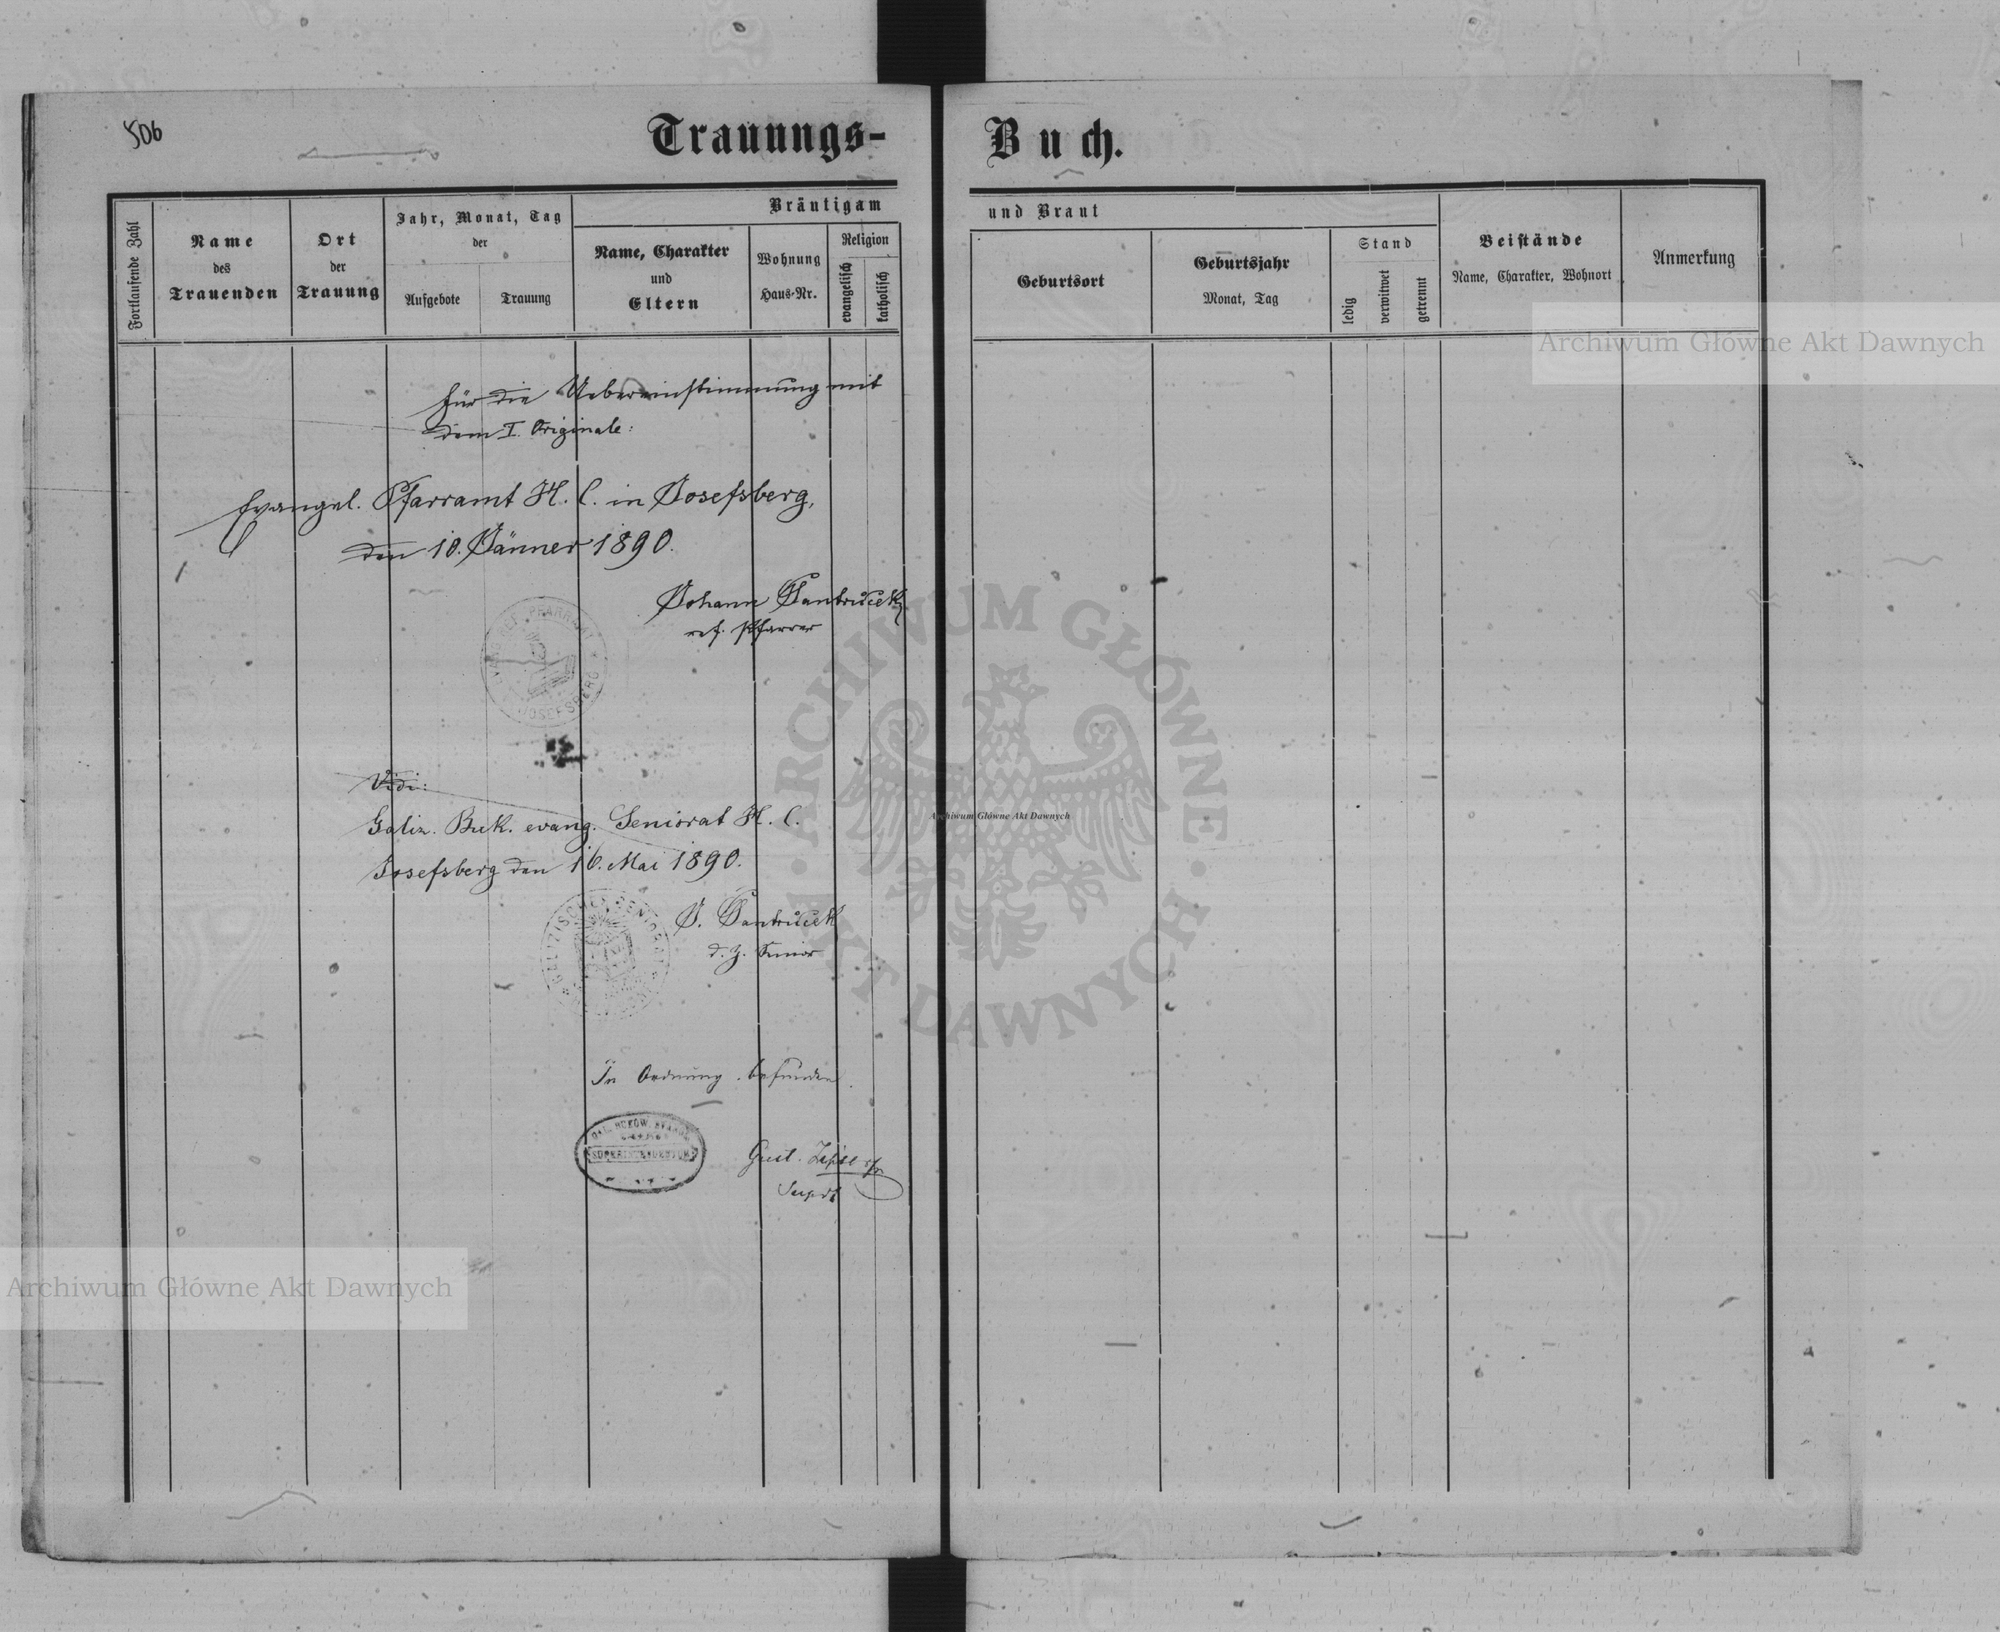 506
Trauungs-
Buch.
Fortlaufende Zahl
Name
des
Trauenden
Ort
der
Trauung
Jahr, Monat, Tag
der
Aufgebote
Trauung
Bräutigam
Name, Charakter
und
Eltern
Wohnung
Haus-Nr.
Religion
evangelisch
katholisch
und Braut
Geburtsort
Geburtsjahr
Monat, Tag
Stand
ledig
verwitwet
getrennt
Beistände
Name, Charakter, Wohnort
Anmerkung
für die Uebereinstimmung mit
dem I. Originale:
Evangel. Pfarramt H. C. in Josefsberg,
den 10. Jänner 1890.
Johann
ref. Pfarrer
EVANG. REF. PFARRAMT
JOSEFSBERG
Vidi:
Galiz. Buk. evang. Seniorat H. C.
Josefsberg den 16. Mai 1890.
J.
d. Z. Senior
SENIORAT
In Ordnung befunden.
BUKOW. EVANG.
SUPERINTENDENTUR
Gust.
Supdt
Archiwum Główne Akt Dawnych
Archiwum Główne Akt Dawnych
Archiwum Główne Akt Dawnych
ARCHIWUM GŁÓWNE
AKT DAWNYCH